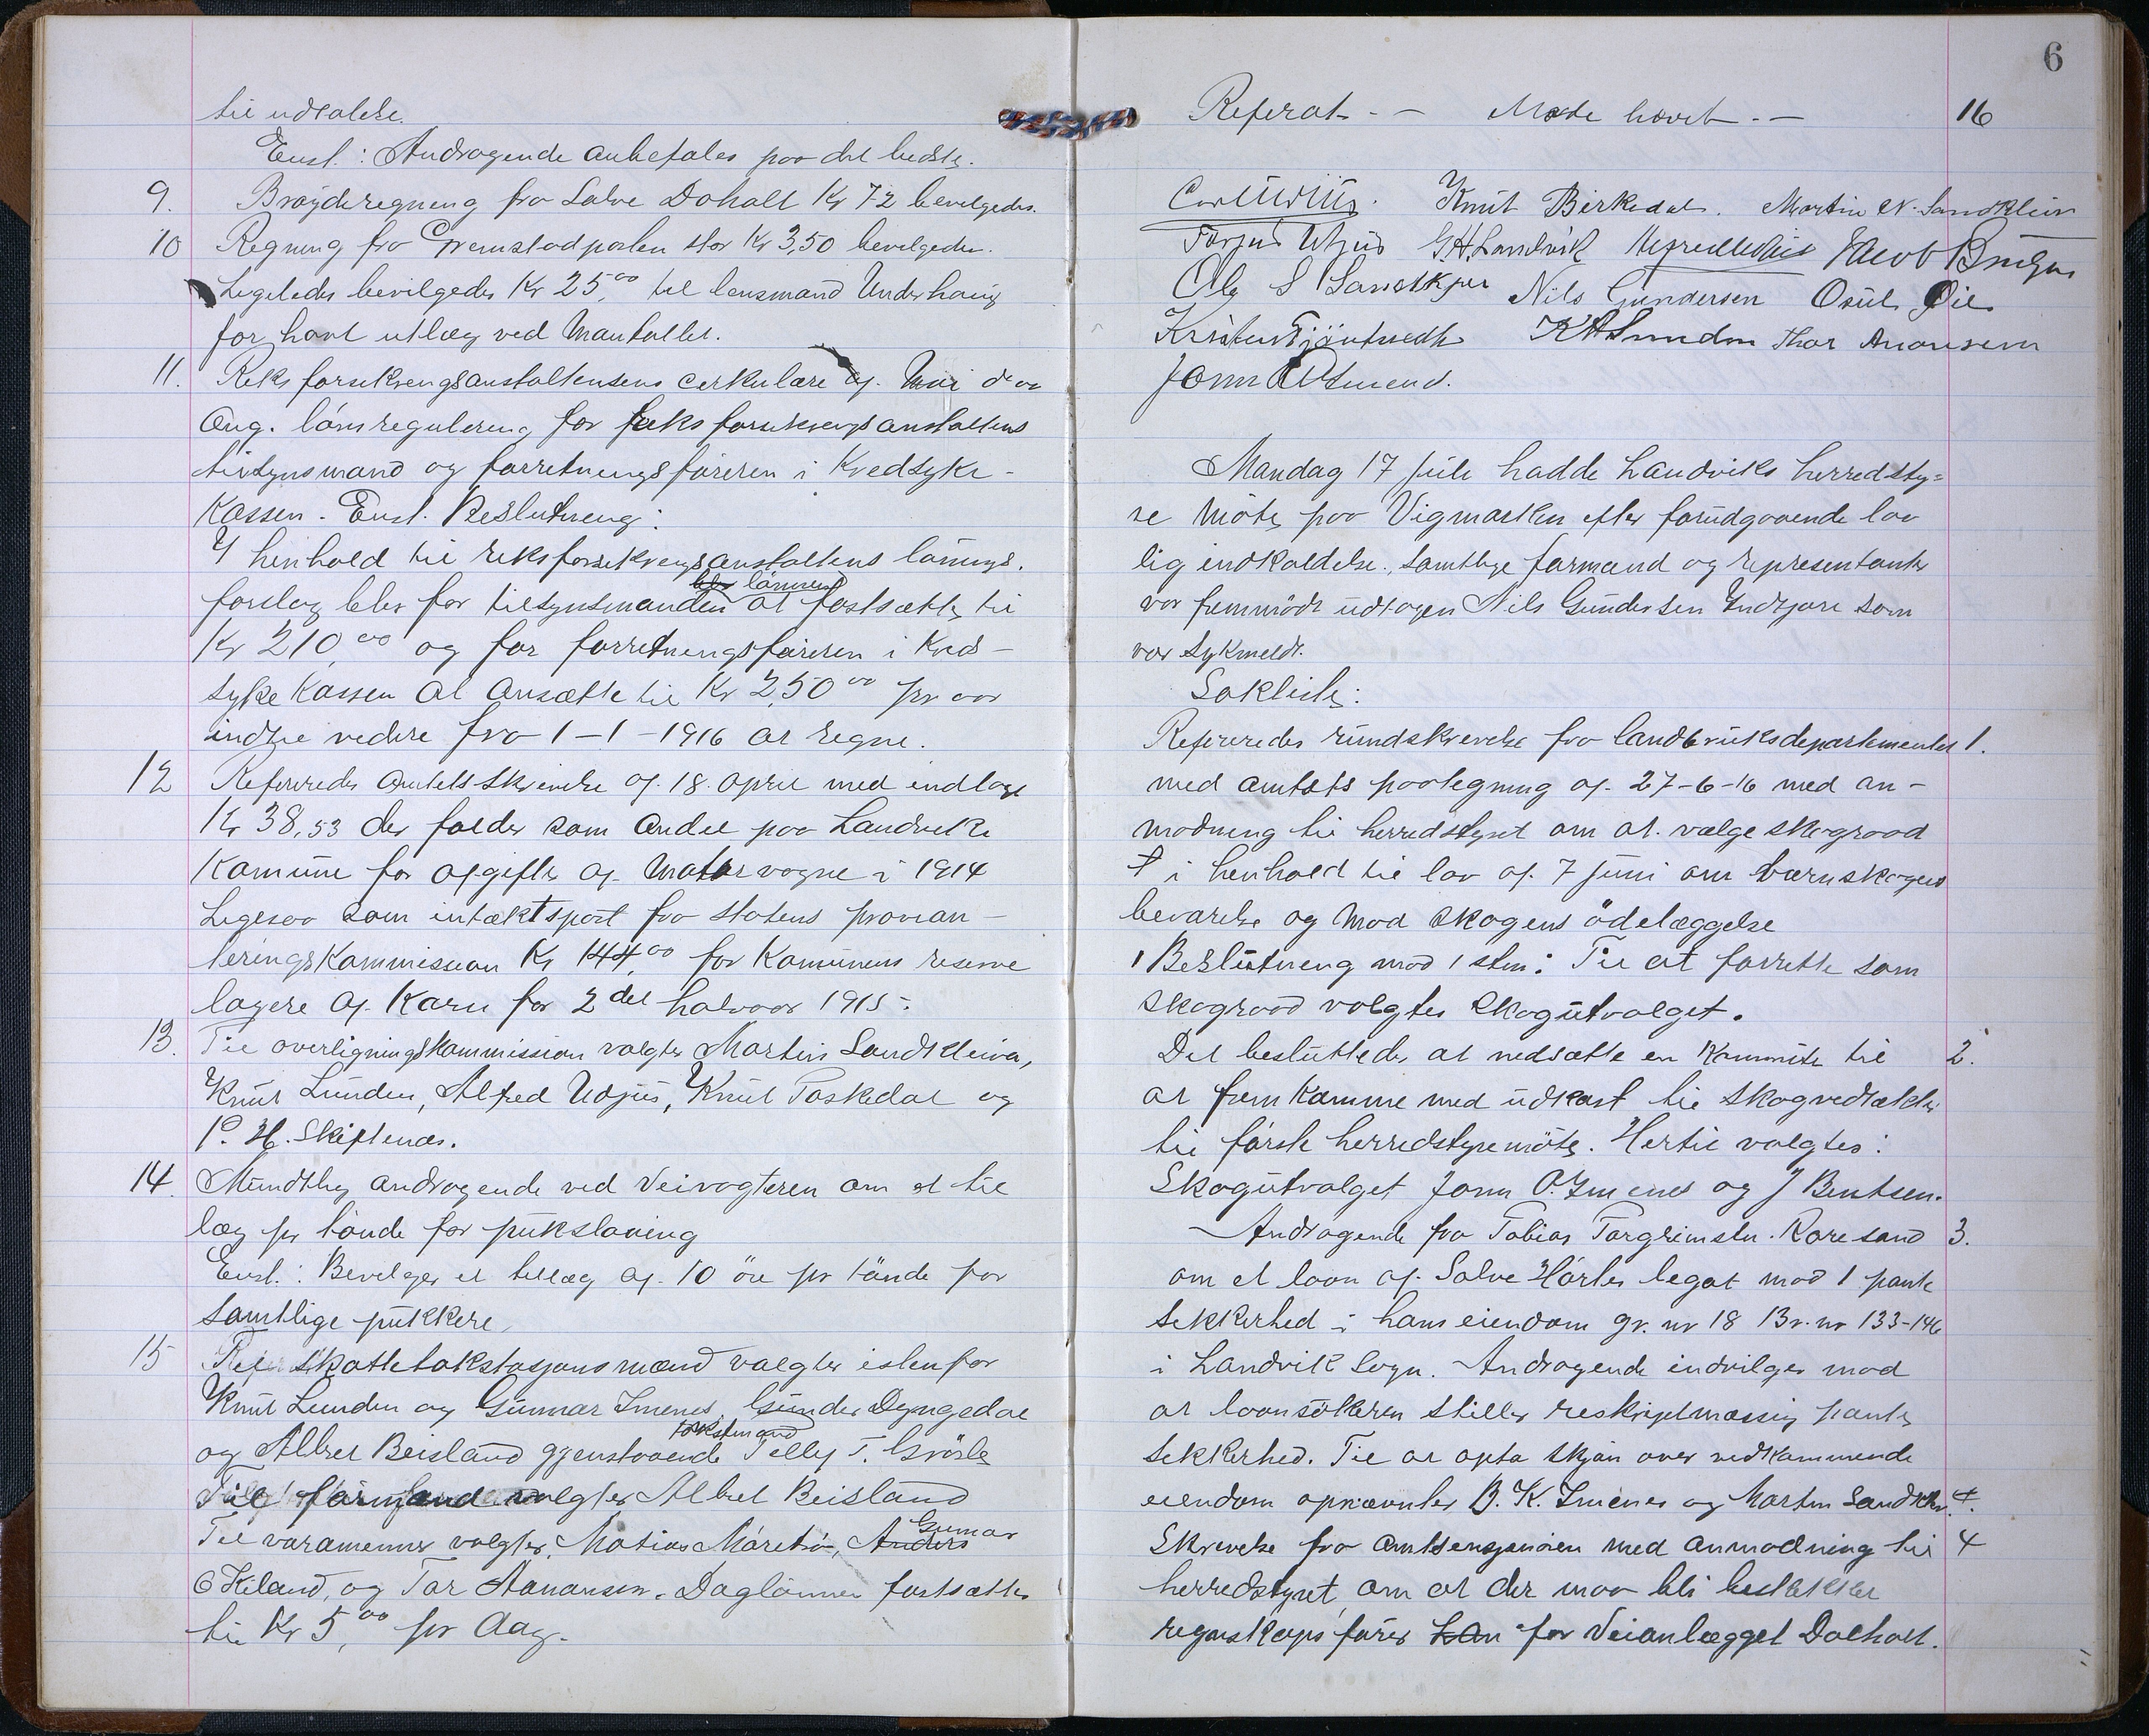 til udtalelse.
Enst.: Andragende anbefales paa det bedste.
9. Brøyderegning fra Salve Dahalt Kr 72 bevilgedes.
10 Regning fra Grimstadposten stor Kr 3,50 bevilgedes.
Ligeledes bevilgedes Kr 25,00 til lensmand Underhaug
for havt utlæg ved Mantallet.
11. Riksforsikringsanstaltensens cirkulære af Mai d.a.
Ang. lönsregulering for riksforsikringsanstaltens
tilsynsmand og forretningsföreren i Kredssyke-
Kassen. Enst. Beslutning:
I henhold til riksforsikringsanstaltens lönings.
blev lönnen
forslag blev for tilsynsmanden at fastsætte til
Kr 210,00 og for forretningsföreren i Kreds-
syke Kassen at ansætte til Kr 2,50 00 pr aar
indtil videre fra 1-1-1916 at regne.
12 Refereredes Amtets skrivelse af 18. april med indlagt
Kr 38,53 der falder som andel paa Landviks
Kamune for afgifter af Motorvogne i 1914
Ligesaa som intæktspost fra statens provian-
teringskommission Kr 144,00 for Kamunens reserve
lagere af Korn for 2det halvaar 1915.
13. Til overligningskommission valgtes Martin Sandkleiva,
Knut Lunden, Alfred Udjus, Knut Taskedal og
P. H. Skiftenes.
14. Mundtlig andragende ved Veivogteren om et til
læg pr tönde for pukslaaing
Enst.: Bevilges et tillæg af 10 öre pr tönde for
samtlige pukkere
15 Til skattetakstasjonsmænd valgtes istenfor
Knut Lunden og Gunnar Imenes, Gunder Dyngedal
takstmand
og Albret Beisland gjenstaaende Tellef T. Grösle
Til formand valgtes Albret Beisland
Gunnar
Til varamenner valgtes. Matias Måretrö, Anders
O Kiland, og Tor Aanansen. Daglönnen fastsættes
til Kr 5,00 pr Dag.
6
Referat - - Møde hævet - - 16
Carl Udjus. Knut Birkedal. Martin N. Sandkleiv
Torjus Udjus G.H. Landvik Alfred Udjus Jacob Bringsv
Ole S Sandkjær Nils Gundersen Osul Öie
Kristen Tjöntvedt K A Lunden Thor Ananssen
Jonn O Imenes.
Mandag 17 juli hadde Landviks herredsty=
re Möte paa Vigmarken efter forudgaaende lov
lig indkaldelse. Samtlige formænd og representanter
var fremmödt udtagen Nils Gundersen Indtjore som
var sykmeldt.
Sakliste:
Refereredes rundskrivelse fra landbruksdepartementet 1.
med amtets paategning af 27-6-16 med an-
modning til herredstyret om at vælge skograad
i henhold til lov af 7 juni om værnskogens
bevarelse og mod skogens ödelæggelse
1 Beslutning mod 1 stm: Til at forrette som
skograad valgtes skogutvalget.
Det besluttedes at nedsætte en Kommite til 2.
at fremkamme med udkast til Skogvedtækter
til förste herredstyremöte. Hertil valgtes:
Skogutvalget Jonn O. Imenes og J Bentsen.
Andragende fra Tobias Torgrimsen. Roresand 3.
om et laan af Salve Hörtes legat mod 1 pante
sekkerhed i hans eiendom gr. nr 18 Br. nr 133-146
i Landvik Sogn. Andragende indvilges mod
at laansökeren stiller reskriptmæssig pante
sekkerhed. Til at opta skjön over vedkommende
eiendom opnævntes B. K. Imenes og Martin Sandklev.
Skrivelse fra Amtsengeniören med anmodning til 4
herredstyret om at der maa bli beskikket
regnskapsförer for Veianlægget Dalholt.